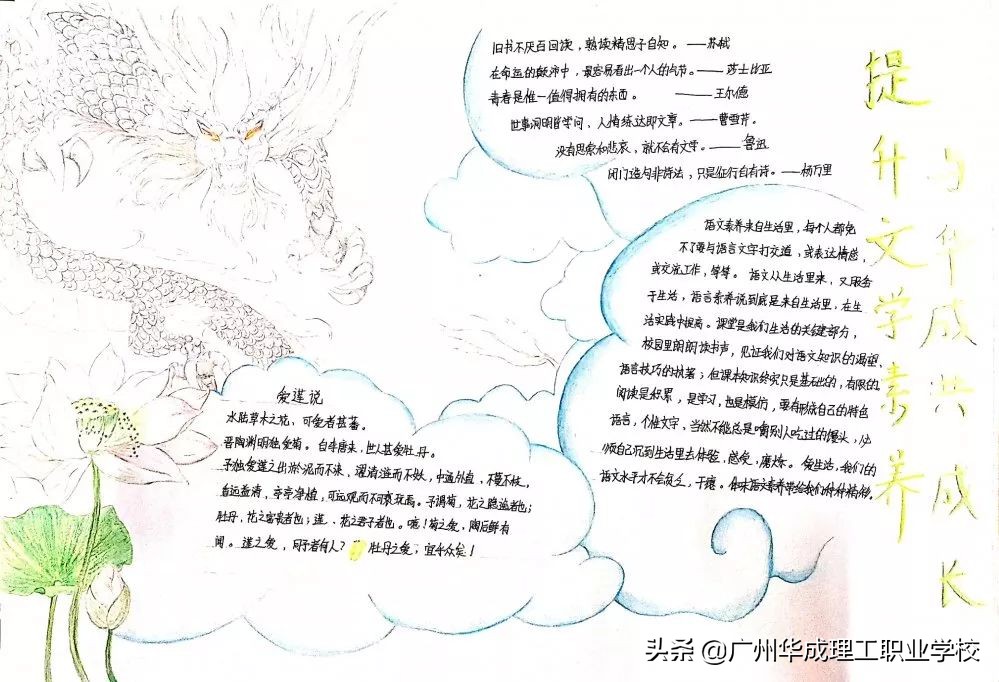 提升文学素养
与华成共成长
旧书不厌百回读，熟读精思子自知。——苏轼
在命运的颠沛中，最容易看出一个人的气节。——莎士比亚
青春是惟一值得拥有的东西。——王尔德
世事洞明皆学问、人情练达即文章。——曹雪芹。
没有思索和悲哀，就不会有文学。——鲁迅
闭门造句非诗法，只是征行自有诗。——杨万里
语文素养来自生活里，每个人都免
不了要与语言文字打交道，或表达情感，
或交流工作，等等。语文从生活里来，又服务
于生活，语言素养说到底是来自生活里，在生
活实践中提高。课堂是我们生活的关键部分，
校园里朗朗读书声，见证我们对语文知识的渴望、
语言技巧的执著；但课本知识终究只是基础的，有限的，
阅读是积累，是学习，也是模仿，要有形成自己的特色
语言，个性文字、当然不能总是嚼别人吃过的馒头，必
须自己沉到生活里去体验，感受，磨炼。爱生活，我们的
语文水平才不会贫乏，干瘪。
爱莲说
水陆草木之花，可爱者甚蕃。
晋陶渊明独爱菊。自李唐来，世人甚爱牡丹。
予独爱莲之出淤泥而不染，濯清涟而不妖，中通外直，不蔓不枝，
香远益清，亭亭净植，可远观而不可亵玩焉。予谓菊，花之隐逸者也；
牡丹，花之富贵者也；莲、花之君子者也。噫！菊之爱，陶后鲜有
闻。莲之爱，同予者何人？牡丹之爱，宜乎众矣！
头条@广州华成理工职业学校